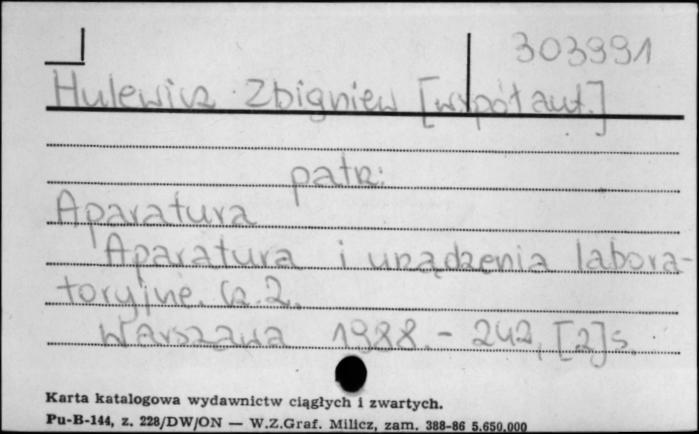 303991
Hulewicz Zbigniew [współaut.]
patrz:
Aparatura
Aparatura i urządzenia labora-
toryjne. Cz. 2.
Warszawa 1988. - 242, [2] s.
Karta katalogowa wydawnictw ciągłych i zwartych.
Pu-B-144, z. 228/DW/ON — W.Z.Graf. Milicz, zam. 388-86 5.650.000